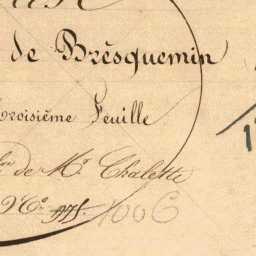 de Brèsquemin
Troisième Feuille
on de Mr. Chalette
No. 978. 1006